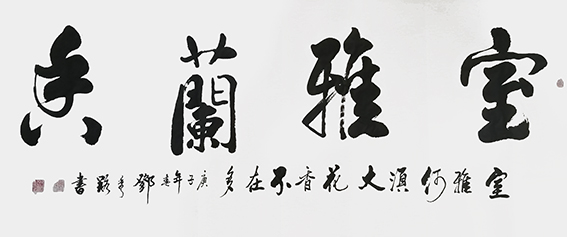 室雅蘭香
室雅何須大花香不在多庚子年春鄧書